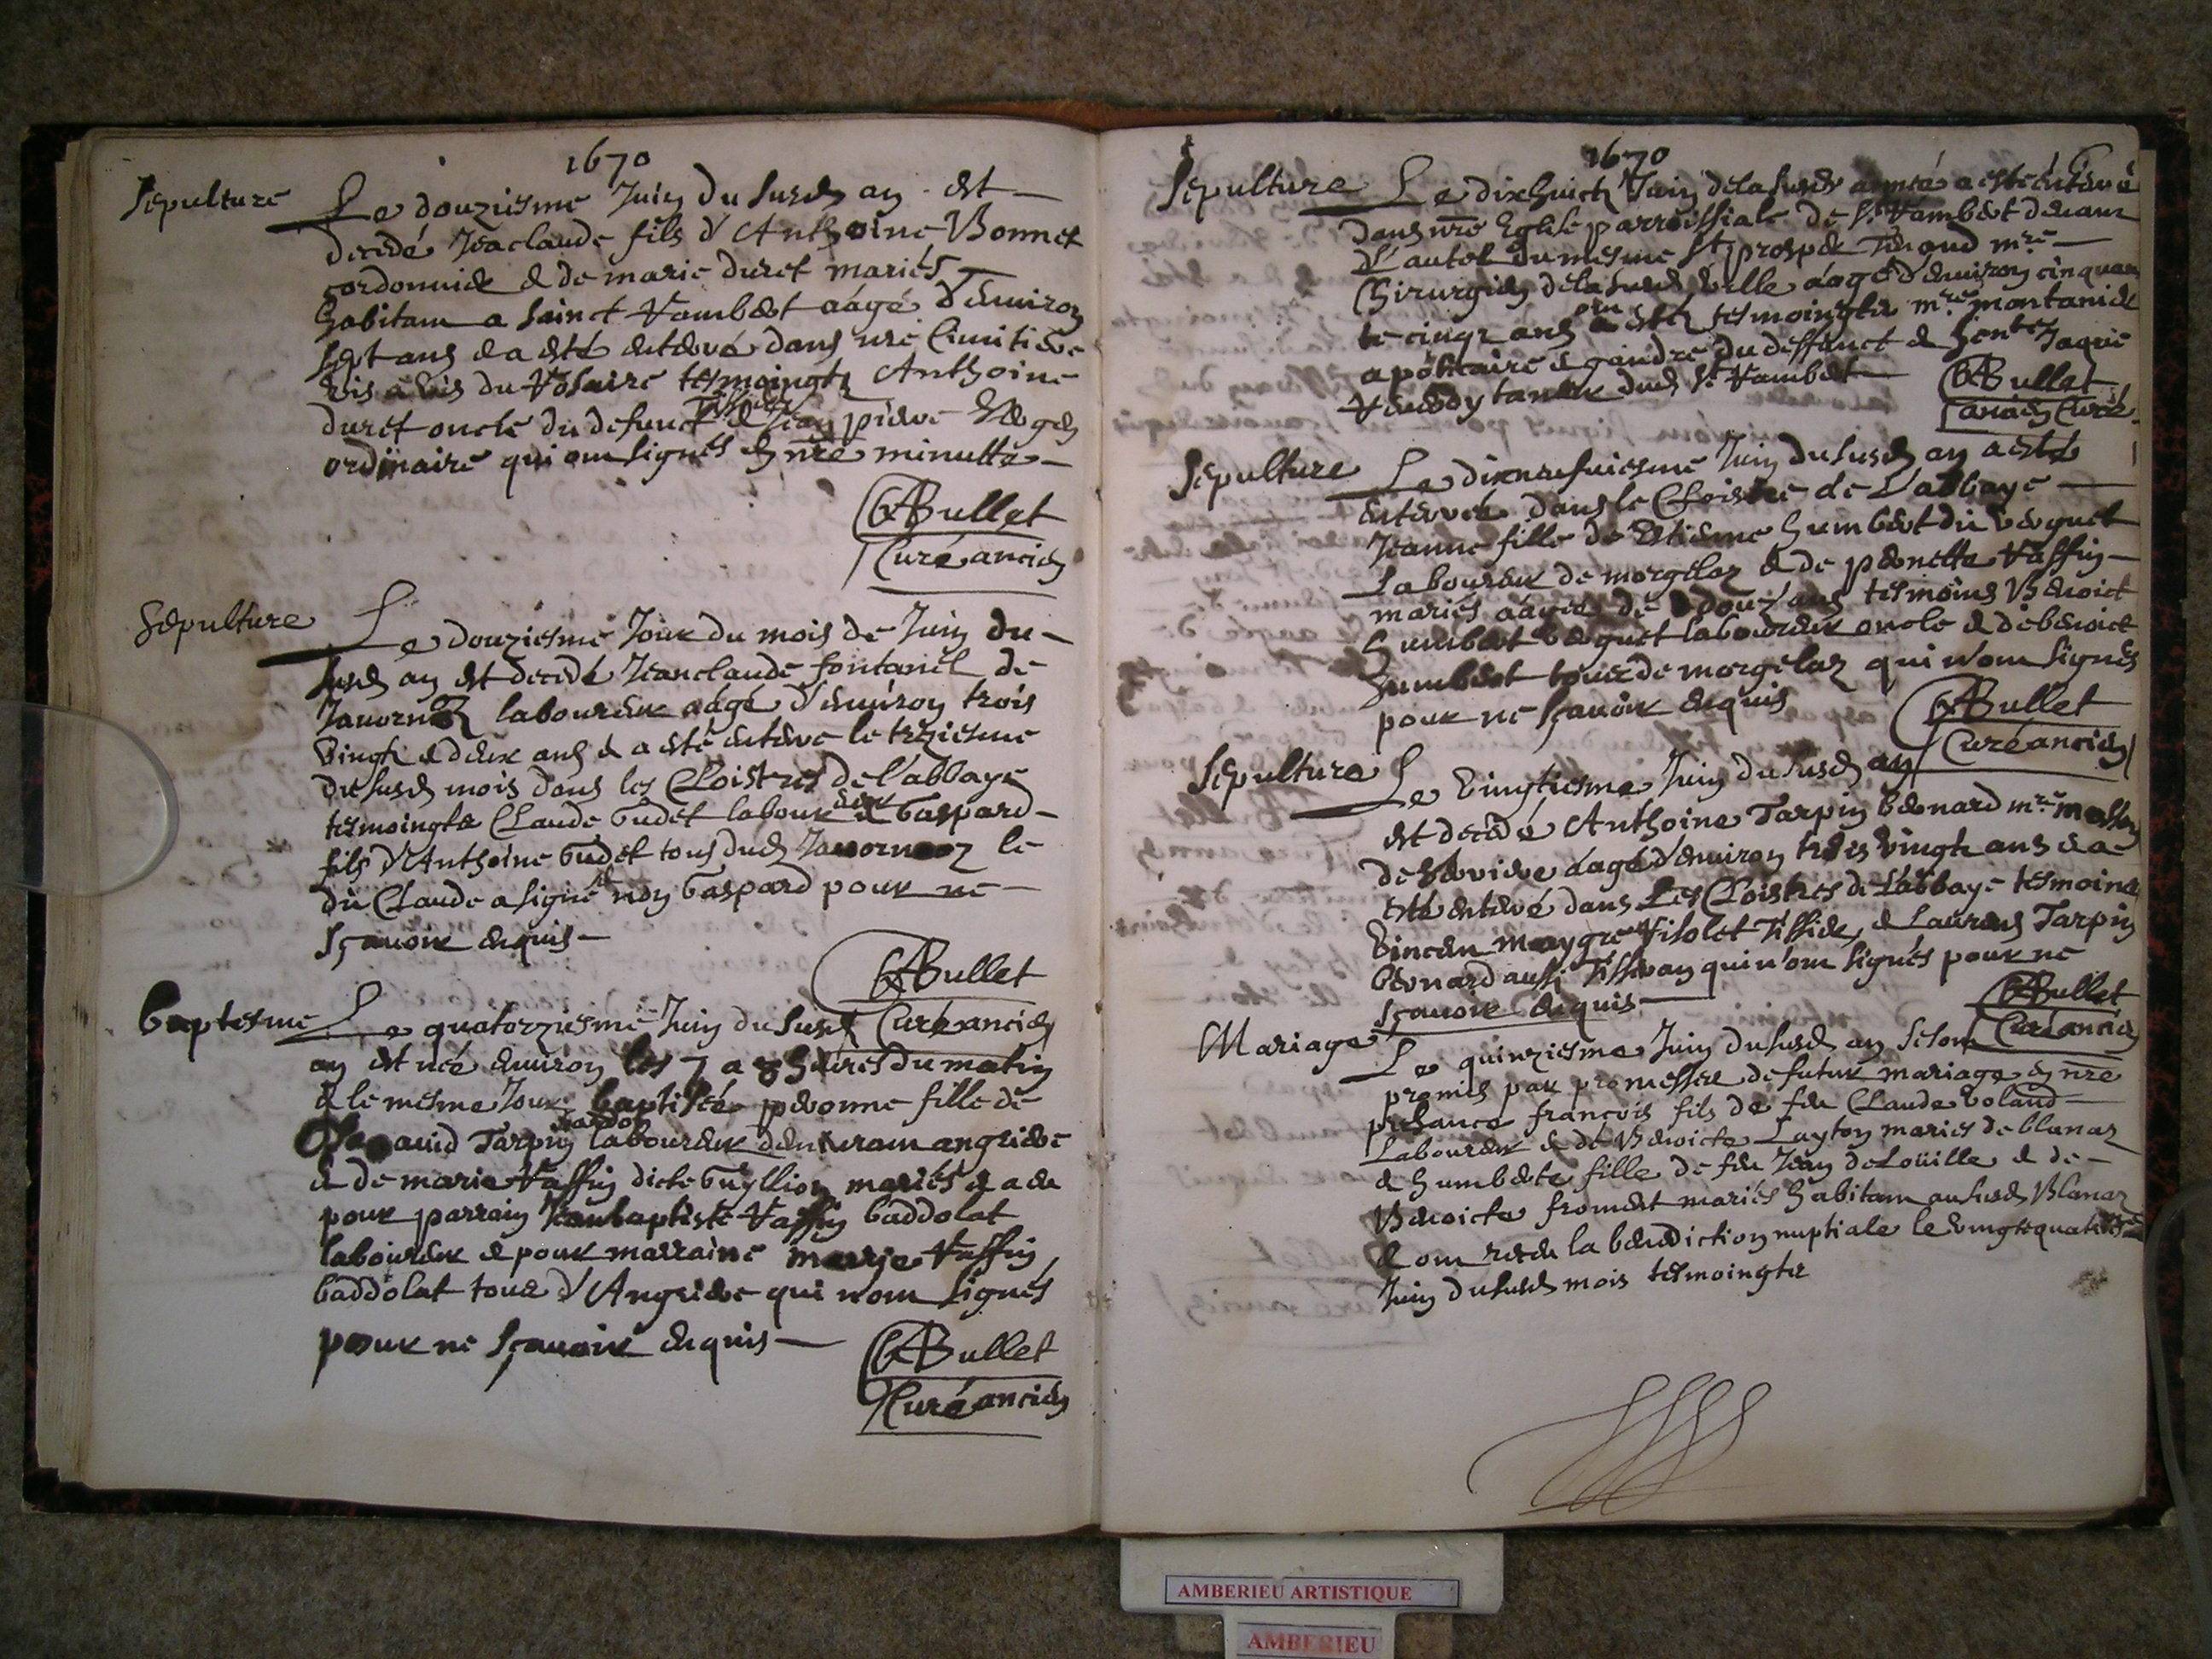 1670
Sepulture Le douziesme Juin du susd an est
decedé Jeaclaude fils d'Anthoine Bonnet
cordonnier & de marie duret mariés
habitam a sainct Rambert aagé d'environ
sept ans & a esté enterré dans nre Cimitiere
vis a vis du Rosaire tesmoingts Anthoine
duret oncle du defunct & Jean pierre
ordinaire qui om signés en nre minutte
Bullet
Curé ancien
Sepulture Le douziesme Jour du mois de Juin du
susd an est decedé Jeanclaude fontanel de
Javornoz laboureur aagé d'environ trois
vingts & deux ans & a esté enterré le treziesme
du susd mois dans les Cloistres de l'abbaye
tesmoingts Claude Gudet laboureur & Gaspard
fils d'Anthoine Gudet tous dud Javornoz le
dit Claude a signé & non Gaspard pour ne
sçavoir enquis
Bullet
Curé ancien
baptesme Le quatorziesme Juin du susd
an est née environ les 7 a 8 heures du matin
& le mesme Jour baptisée peronne fille de
Tarpin laboureur angriere
& de marie Vassin dicte Guyllion mariés & a eu
pour parrain Jeanbaptiste Vassin baddolat
laboureur & pour marraine marie Vassin
baddolat tous d'Angriere qui nom signés
pour ne sçavoir enquis
Bullet
Curé ancien
1670
6
Sepulture Le dixhuict Juin de la susd année a esté enterré
dans nre Eglise parroissiale de St Rambert devant
l'autel du mesme St prosper mre
Chirurgien de la susd ville aagé d'environ cinquan
te cinq ans tesmoingts mre montanier
apoticaire & gendre du deffunct & Jaque
tanneur dud St Rambert
Bullet
ancien Curé
Sepulture Le dixneufviesme Juin du susd an a esté
enterrée dans le Cloistre de L'abbaye
Jeanne fille de Estienne humbert dit berguet
Laboureur de morgelaz & de pernette Vassin
mariés aagée de douz ans tesmoins Benoict
humbert berguet laboureur oncle & de benoict
humbert tous de morgelaz qui n'om signés
pour ne sçavoir enquis
Bullet
Curé ancien
Sepulture Le vingtiesme Juin du susd an
est decedé Anthoine Tarpin bernard mre masson
de serviere aagé d'environ trois vingts ans & a
esté enterré dans les Cloistres de l'abbaye tesmoins
vincen maygre Violet Tissier & Laurens Tarpin
bernard aussi Tisseran qui n'om signés pour ne
sçavoir enquis
Bullet
Curé ancien
Mariage Le quinziesme Juin du susd an se som
promis par promesses de futur mariage en nre
presance francois fils de feu Claude boland
Laboureur & de Benoicte Luyton mariés de blanaz
& humberte fille de feu Jean delouille & de
Benoicte froment mariés habitam au susd Blanaz
& om receu la benediction nuptiale le vingtquatriesme
Juin du susd mois tesmoingts
AMBERIEU ARTISTIQUE
AMBERIEU